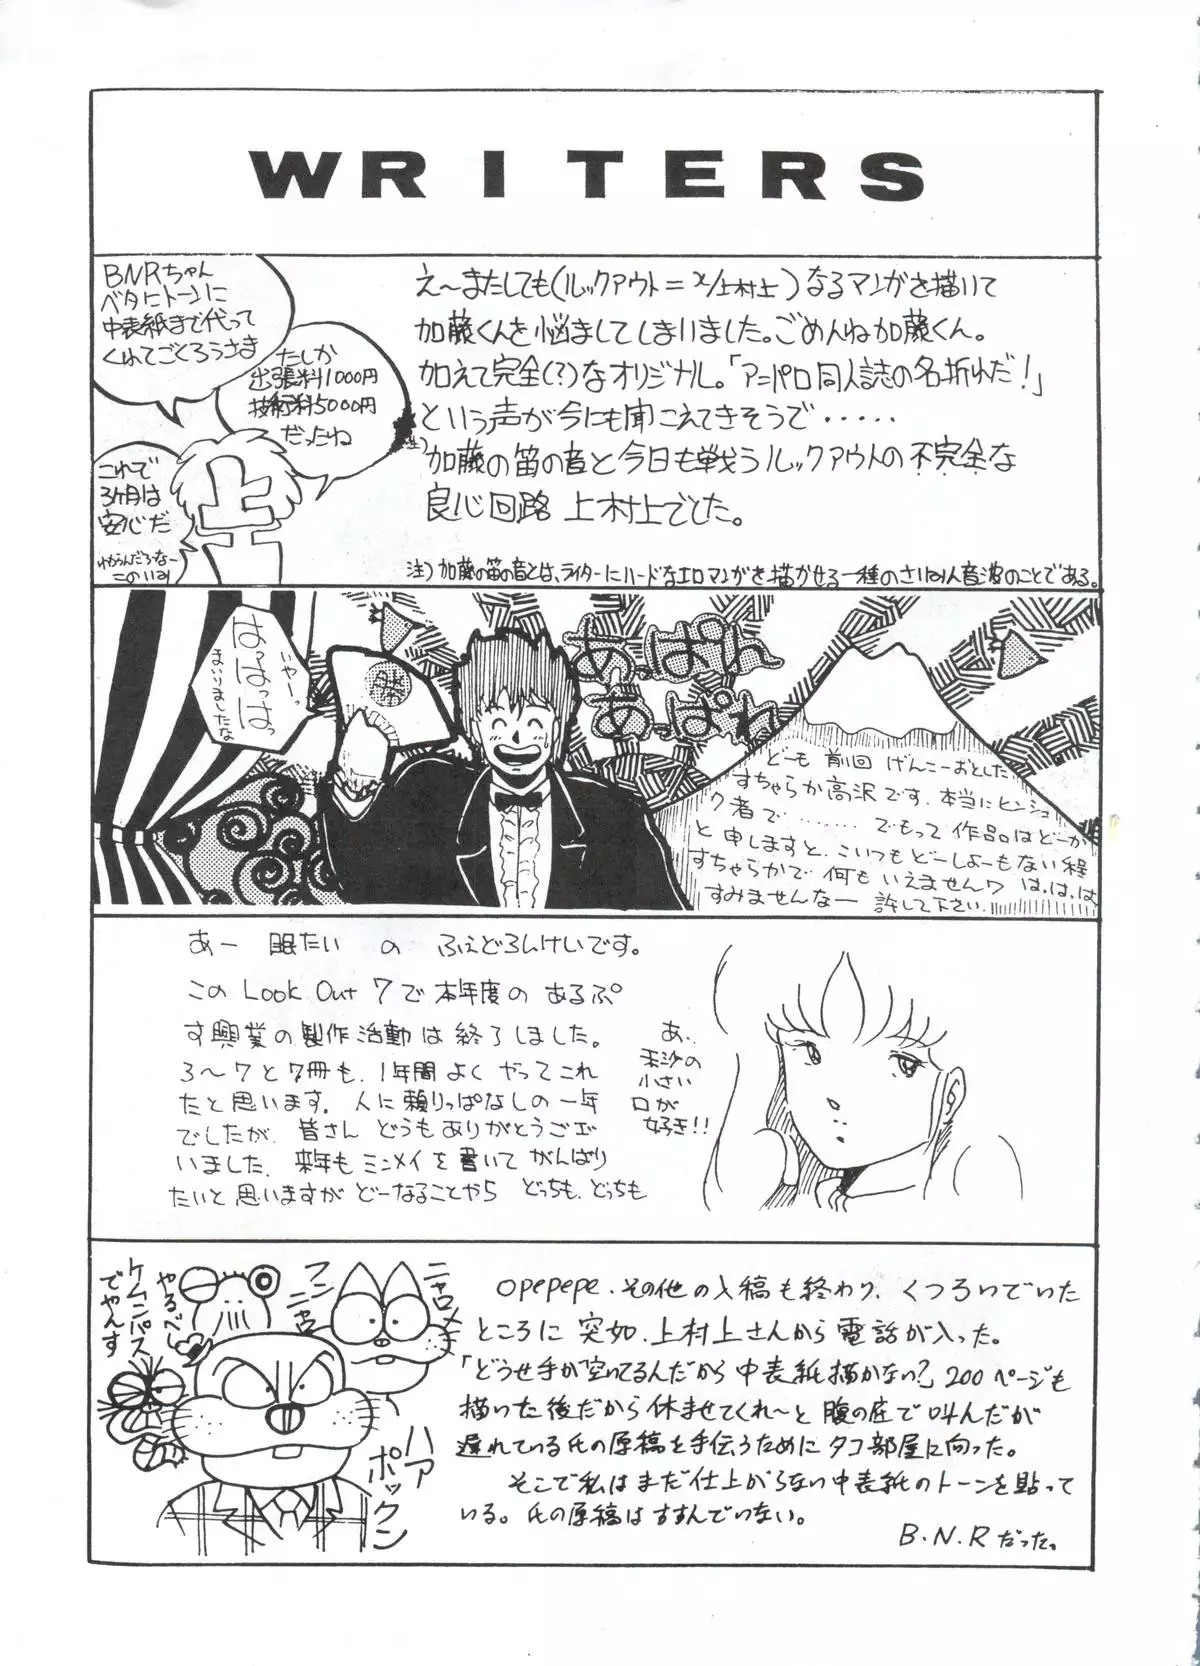 WRITERS
BNRちゃん
ベタにトーンに
中表紙まで代って
くれてごくろうさま
たしか
出張料1000円
技術料5000円
だったね
これで
3ヶ月は
安心だ
わからんだろーなー
上
え〜またしても(ルックアウト=X/上村上)なるマンガを描いて
加藤くんを悩ましてしまいました。ごめんね加藤くん。
加えて完全(?)なオリジナル。「アニパロ同人誌の名折れだ!」
という声が今にも聞こえてきそうで・・・・・
注)
加藤の笛の音と今日も戦うルックアウトの不完全な
良心回路 上村上でした。
注)加藤の笛の音とは、ライターにハードなエロマンガを描かせる一種のさいみん音波のことである。
いやーっ
はっはっはっ
まいりましたな
あっぱれ
あっぱれ
どーも 前回 げんこーおとした
すちゃらか高沢です.本当にヒンシュ
ク者で……… でもって作品はどーか
と申しますと、こいつもどーしょーもない程
すちゃらかで何もいえませんワ はっはっは
すみませんなー 許して下さい.
あー 眠たい の ふぇどろんけいです。
この Look Out 7で本年度の あるぷ
す興業の製作活動は終了しました。
3〜7と7冊も、1年間よく やってこれ
たと思います. 人に頼りっぱなしの一年
でしたが、皆さん どうもありがとうござ
いました. 来年もミンメイを書いて がんばり
たいと思いますが どーなることやら どっちも、どっちも
あ、
の
小さい
口が
好き!!
ケムンパス
でやんす
やるべし
ニャロメ
フンニャロ
ハア
ポックン
opepepe.その他の入稿も終わり、くつろいでいた
ところに 突如、上村上さんから 電話が入った。
「どうせ手が空いてるんだから中表紙描かない?」200ページも
描いた後だから休ませてくれ〜と 腹の底で叫んだが
遅れている氏の原稿を手伝うために タコ部屋に向った。
そこで私はまだ仕上がらない中表紙のトーンを貼って
いる。氏の原稿はすすんでいない。
B.N.Rだった。